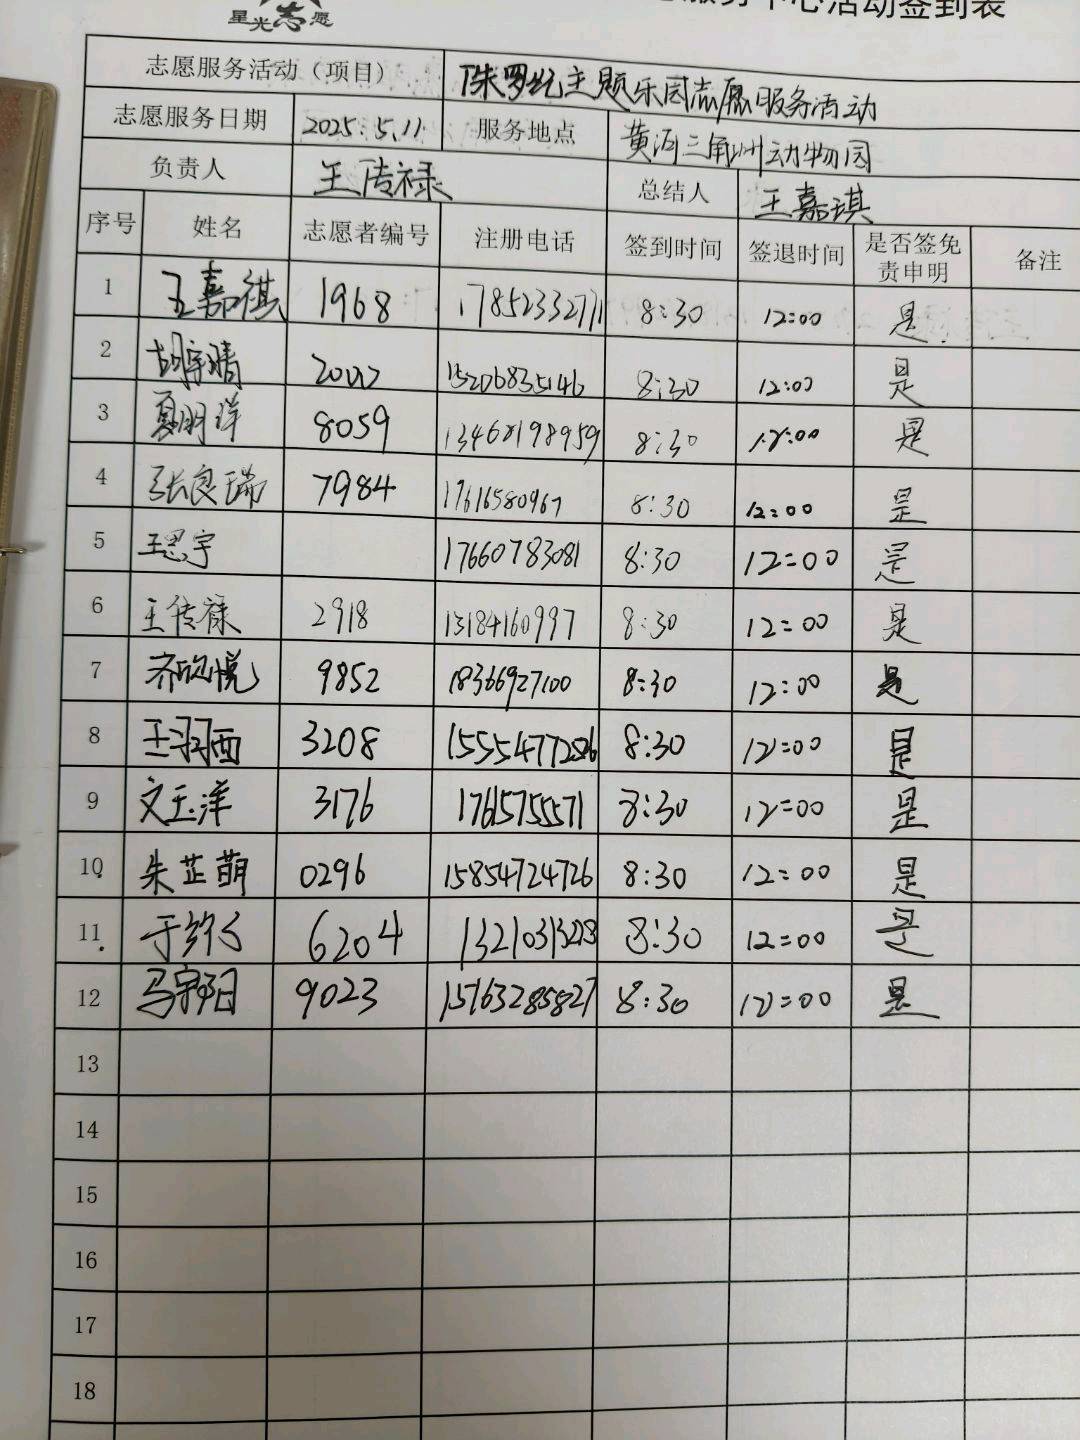 星光志愿
服务中心活动签到表
志愿服务活动（项目） 侏罗纪主题乐园志愿服务活动
志愿服务日期 2025.5.11 服务地点 黄河三角洲动物园
负责人 王传禄 总结人 王嘉琪
序号 姓名 志愿者编号 注册电话 签到时间 签退时间 是否签免责申明 备注
1 王嘉祺 1968 17852332771 8:30 12:00 是
2 胡宇晴 15206835146 8:30 12:00 是
3 夏明洋 8059 13468198959 8:30 12:00 是
4 张良瑞 7984 17616580967 8:30 12:00 是
5 王思宇 17660783081 8:30 12:00 是
6 王传禄 2918 13184160997 8:30 12:00 是
7 齐欣悦 9852 18366927100 8:30 12:00 是
8 王羽西 3208 8:30 12:00 是
9 文玉洋 3176 17615755571 8:30 12:00 是
10 朱芷萌 0296 15854724726 8:30 12:00 是
11 于 6204 8:30 12:00 是
12 马宇阳 9023 15763285827 8:30 12:00 是
13
14
15
16
17
18